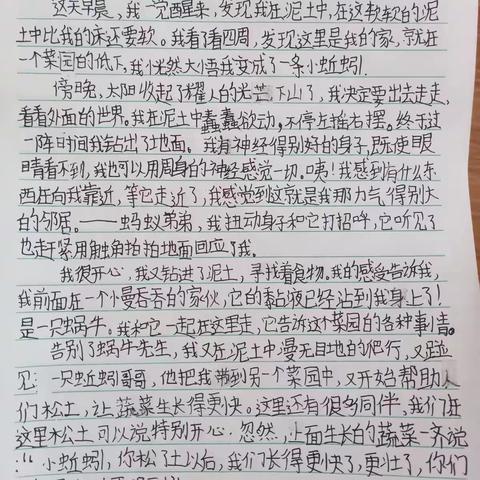 这天早晨，我一觉醒来，发现我在泥土中，在这软软的泥
土中比我的床还要软。我看了看四周，发现这里是我的家，就在
一个菜园的低下，我恍然大悟我变成了一条小蚯蚓。
傍晚，太阳收起了耀人的光芒下山了，我决定要出去走走，
看看外面的世界。我在泥土中蠢蠢欲动，不停左摇右摆。终于过
一阵时间我钻出了地面。我有神经得别好的身子，既使眼
睛看不到，我也可以用周身的神经感觉一切。咦！我感到有什么东
西在向我靠近，等它走近了，我感觉到这就是我那力气得别大
的邻居。——蚂蚁弟弟，我扭动身子和它打招呼，它听见了
也赶紧用触角拍拍地面回应了我。
我很开心，我又钻进了泥土，寻找着食物。我的感受告诉我，
我前面在一个小曼吞吞的家伙，它的黏液已经沾到我身上了！
是一只蜗牛。我和它一起在这里走，它告诉这个菜园的各种事情。
告别了蜗牛先生，我又在泥土中漫无目地的爬行，又碰
见：一只蚯蚓哥哥，他把我带到另一个菜园中，又开始帮助人
们松土，让蔬菜生长得更快。这里还有很多同伴，我们在
这里松土可以说特别开心。忽然，上面生长的蔬菜一齐说
：“小蚯蚓，你松了土以后，我们长得更快了，更壮了，你们